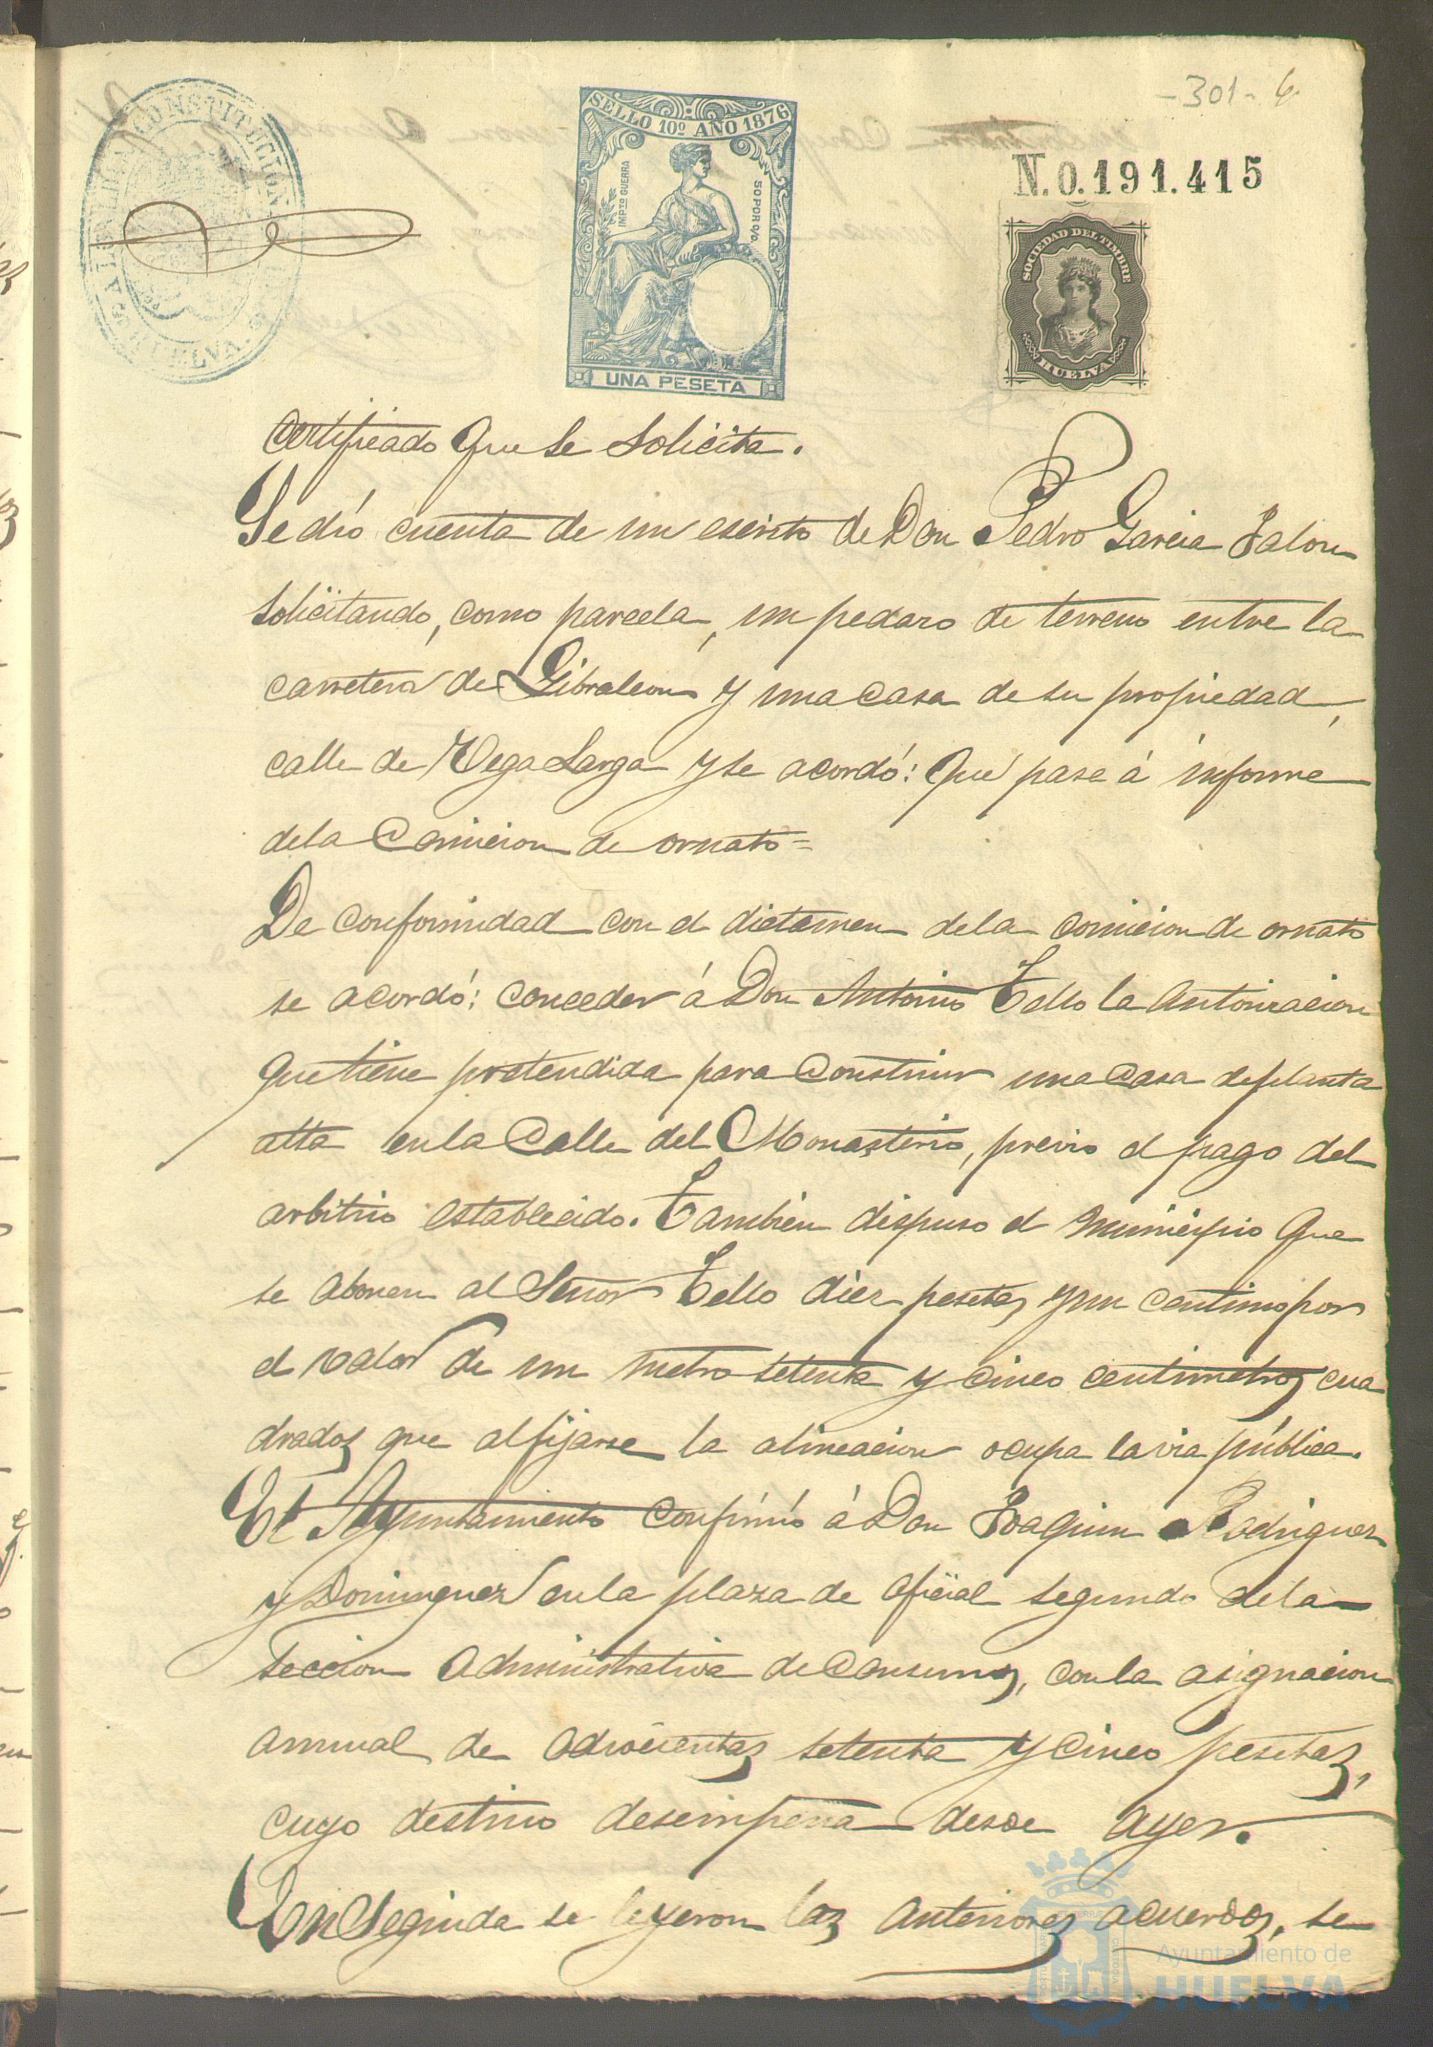 -301- 6
ALCALDIA CONSTITUCIONAL
HUELVA
SELLO 10º AÑO 1876
IMPTO GUERRA
50 POR 0/0
UNA PESETA
N.0.191.415
SOCIEDAD DEL TIMBRE
HUELVA
certificado que se solicita.
Se dió cuenta de un escrito de Don Pedro Garcia Jalon
solicitando, como parcela, un pedazo de terreno entre la
carretera de Gibraleon y una casa de su propiedad,
calle de Vega Larga y se acordó: que pase á informe
de la Comicion de ornato=
De conformidad con el dictamen de la comicion de ornato
se acordó: conceder á Don Antonio Tello la autorizacion
que tiene pretendida para construir una casa de planta
alta en la Calle del Monasterio, previo el pago del
arbitrio establecido. Tambien dispuso el municipio que
se abonen al Señor Tello diez pesetas y un centimo por
el valor de un metro setenta y cinco centimetros cua
drados que al fijarse la alineacion ocupa la via pública.
El Ayuntamiento confirió á Don Joaquin Rodriguez
y Dominguez en la plaza de oficial segundo de la
seccion administrativa de consumos, con la asignacion
annual de setenta y cinco pesetas,
cuyo destino desempeña desde ayer.
En seguida se leyeron los anteriores acuerdos, se
Ayuntamiento de
HUELVA